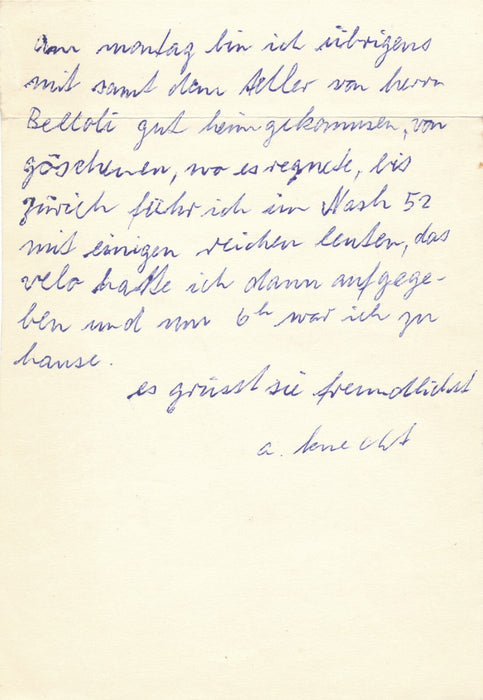 am montag bin ich übrigens
mit samt dem teller von herrn
Bettoli gut heimgekommen, von
göschenen, wo es regnete, bis
zürich fuhr ich im Nash 52
mit einigen reichen leuten, das
velo hatte ich dann aufgege-
ben und um 6h war ich zu
hause.
es grüsst sie freundlichst
a. knecht